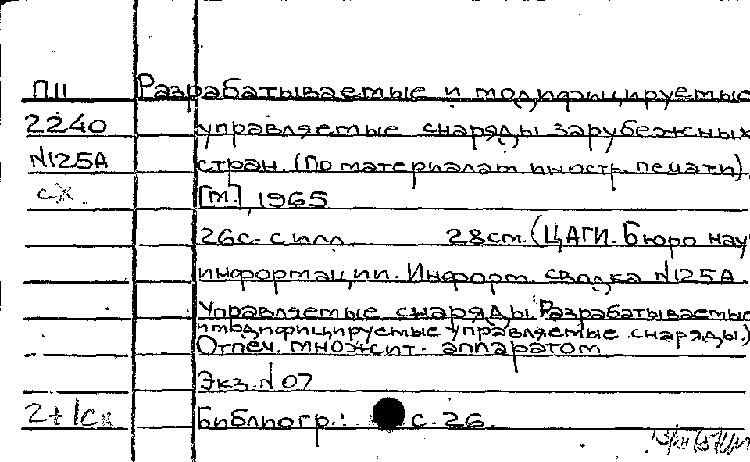 П11 Разрабатываемые и модифицируемые
2240 управляемые снаряды зарубежных
N125A стран. (По материалам иностр. печати).
сх. [М.], 1965
26с. с илл. 28см. (ЦАГИ. Бюро науч
информации. Информ. сводка N125A.
Управляемые снаряды. Разрабатываемые
и модифицируемые управляемые снаряды.)
Отпеч. множит. аппаратом
Экз. N 07
2+1ск Библиогр.: с. 26.